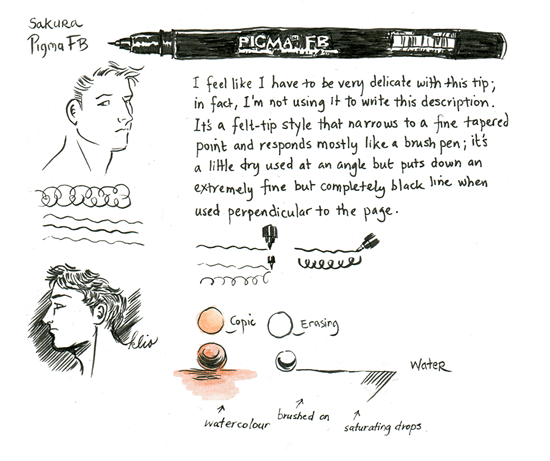 Sakura
Pigma FB
PIGMA FB
I feel like I have to be very delicate with this tip;
in fact, I'm not using it to write this description.
It's a felt-tip style that narrows to a fine tapered
point and responds mostly like a brush pen; it's
a little dry used at an angle but puts down an
extremely fine but completely black line when
used perpendicular to the page.
Copic
Erasing
Klio
Water
watercolour
brushed on
saturating drops